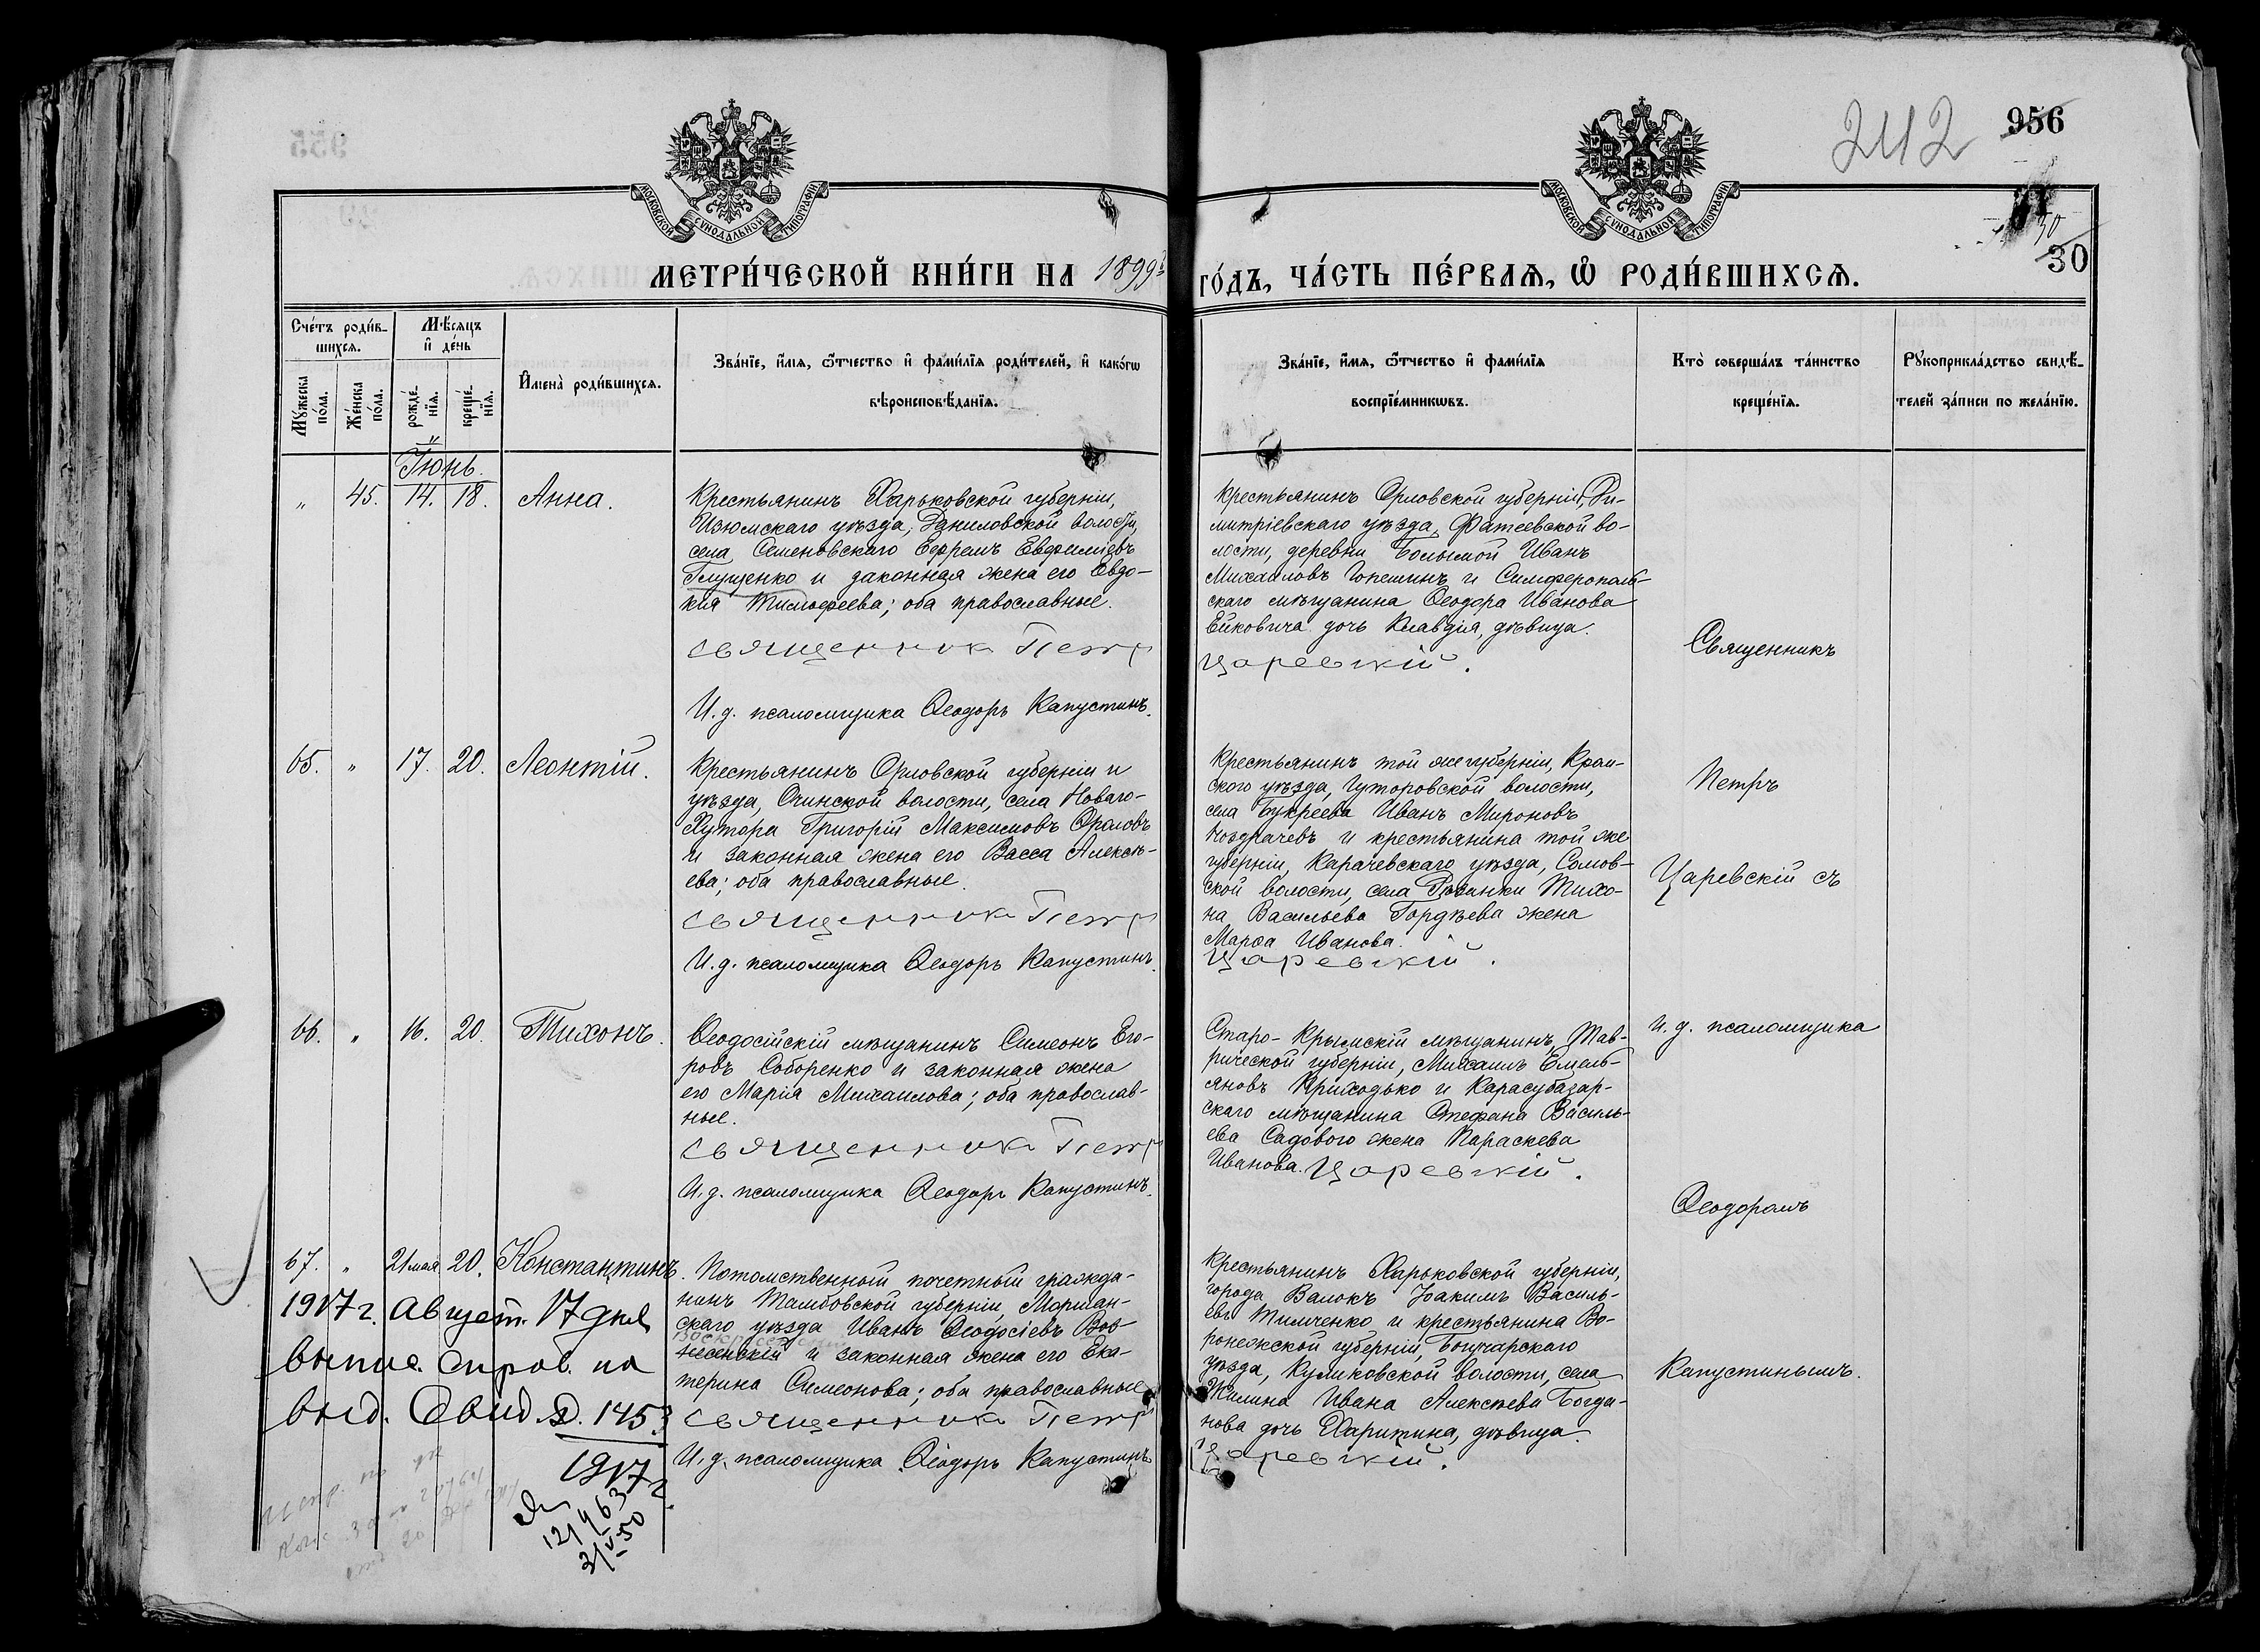 242
956
30
30
МОСКОВСКОЙ СѴНОДАЛЬНОЙ ТИПОГРАФІИ
МОСКОВСКОЙ СѴНОДАЛЬНОЙ ТИПОГРАФІИ
МЕТРИ́ЧЕСКОЙ КНИ́ГИ НА 1899й
ГО́ДЪ, ЧА́СТЬ ПЕ́РВАѦ, Ѡ РОДИ́ВШИХСѦ.
Сче́тъ роди́в-
шихсѧ.
Мѣ́сѧцъ
и де́нь
Му́жеска
по́ла.
Же́нска
по́ла.
рожде́-
нїѧ.
креще́-
нїѧ.
Имена̀ роди́вшихсѧ.
Зва́нїе, и́мѧ, ѻ́тчество и фами́лїѧ роди́телей, и како́гѡ
вѣроисповѣ́данїѧ.
Зва́нїе, и́мѧ, ѻ́тчество и фами́лїѧ
воспрїе́мникѡвъ.
Кто̀ соверша́лъ та́инство
креще́нїѧ.
Рꙋкоприкла́дство свидѣ́-
телей за́писи по жела́нїю.
Іюнь.
" 45. 14. 18. Анна.
Крестьянинъ Харьковской губерніи,
Изюмскаго уѣзда, Даниловской волости,
села Семеновскаго Ефремъ Евфиміевъ
Глущенко и законная жена его Евдо-
кія Тимофеева; оба православные.
священникъ Петръ
И. д. псаломщика Ѳеодоръ Капустинъ.
Крестьянинъ Орловской губерніи, Ди-
митріевскаго уѣзда, Фатеевской во-
лости, деревни Большой Иванъ
Михаиловъ и Симферополь-
скаго мѣщанина Ѳеодора Иванова
Ейковича дочь Клавдія, дѣвица.
Царевскій.
Священникъ
65. " 17. 20. Леонтій.
Крестьянинъ Орловской губерніи и
уѣзда, волости, села Новаго-
Хутора Григорій Максимовъ Орловъ
и законная жена его Васса Алексѣ-
ева; оба православные.
священникъ Петръ
И. д. псаломщика Ѳеодоръ Капустинъ.
Крестьянинъ той же губерніи, Кром-
ского уѣзда, Гуторовской волости,
села Букреева Иванъ Мироновъ
Ноздрачевъ и крестьянина той же
губерніи, Карачевскаго уѣзда, Сомов-
ской волости, села Тихо-
на Васильева Гордѣева жена
Марѳа Иванова.
Царевскій.
Петръ
Царевскій съ
66. " 16. 20. Тихонъ.
Ѳеодосійскій мѣщанинъ Симеонъ Его-
ровъ Соборенко и законная жена
его Марія Михаилова; оба православ-
ные.
священникъ Петръ
И. д. псаломщика Ѳеодоръ Капустинъ.
Старо-Крымскій мѣщанинъ, Тав-
рической губерніи, Михаилъ Емель-
яновъ Приходько и Карасубазар-
скаго мѣщанина Стефана Василь-
ева Садового жена Параскева
Иванова. Царевскій.
И. д. псаломщика
Ѳеодоромъ
67. " 21 мая 20. Константинъ.
Потомственный почетный гражда-
нинъ Тамбовской губерніи, Моршан-
скаго уѣзда Иванъ Ѳеодосіевъ Воз-
несенскій и законная жена его Ека-
терина Симеонова; оба православные
священникъ Петръ
И. д. псаломщика Ѳеодоръ Капустинъ
Крестьянинъ Харьковской губерніи,
города Валокъ Іоакимъ Василь-
евъ Тимченко и крестьянина Во-
ронежской губерніи, Богучарскаго
уѣзда, Куликовской волости, села
Жилина Ивана Алексѣева Богда-
нова дочь Харитина, дѣвица.
Царевскій.
Капустинымъ.
1917 г. Август. 17 дня
выпис. справ. на
выд. Свид. №. 1453
1917 г.
121463
3/V-50